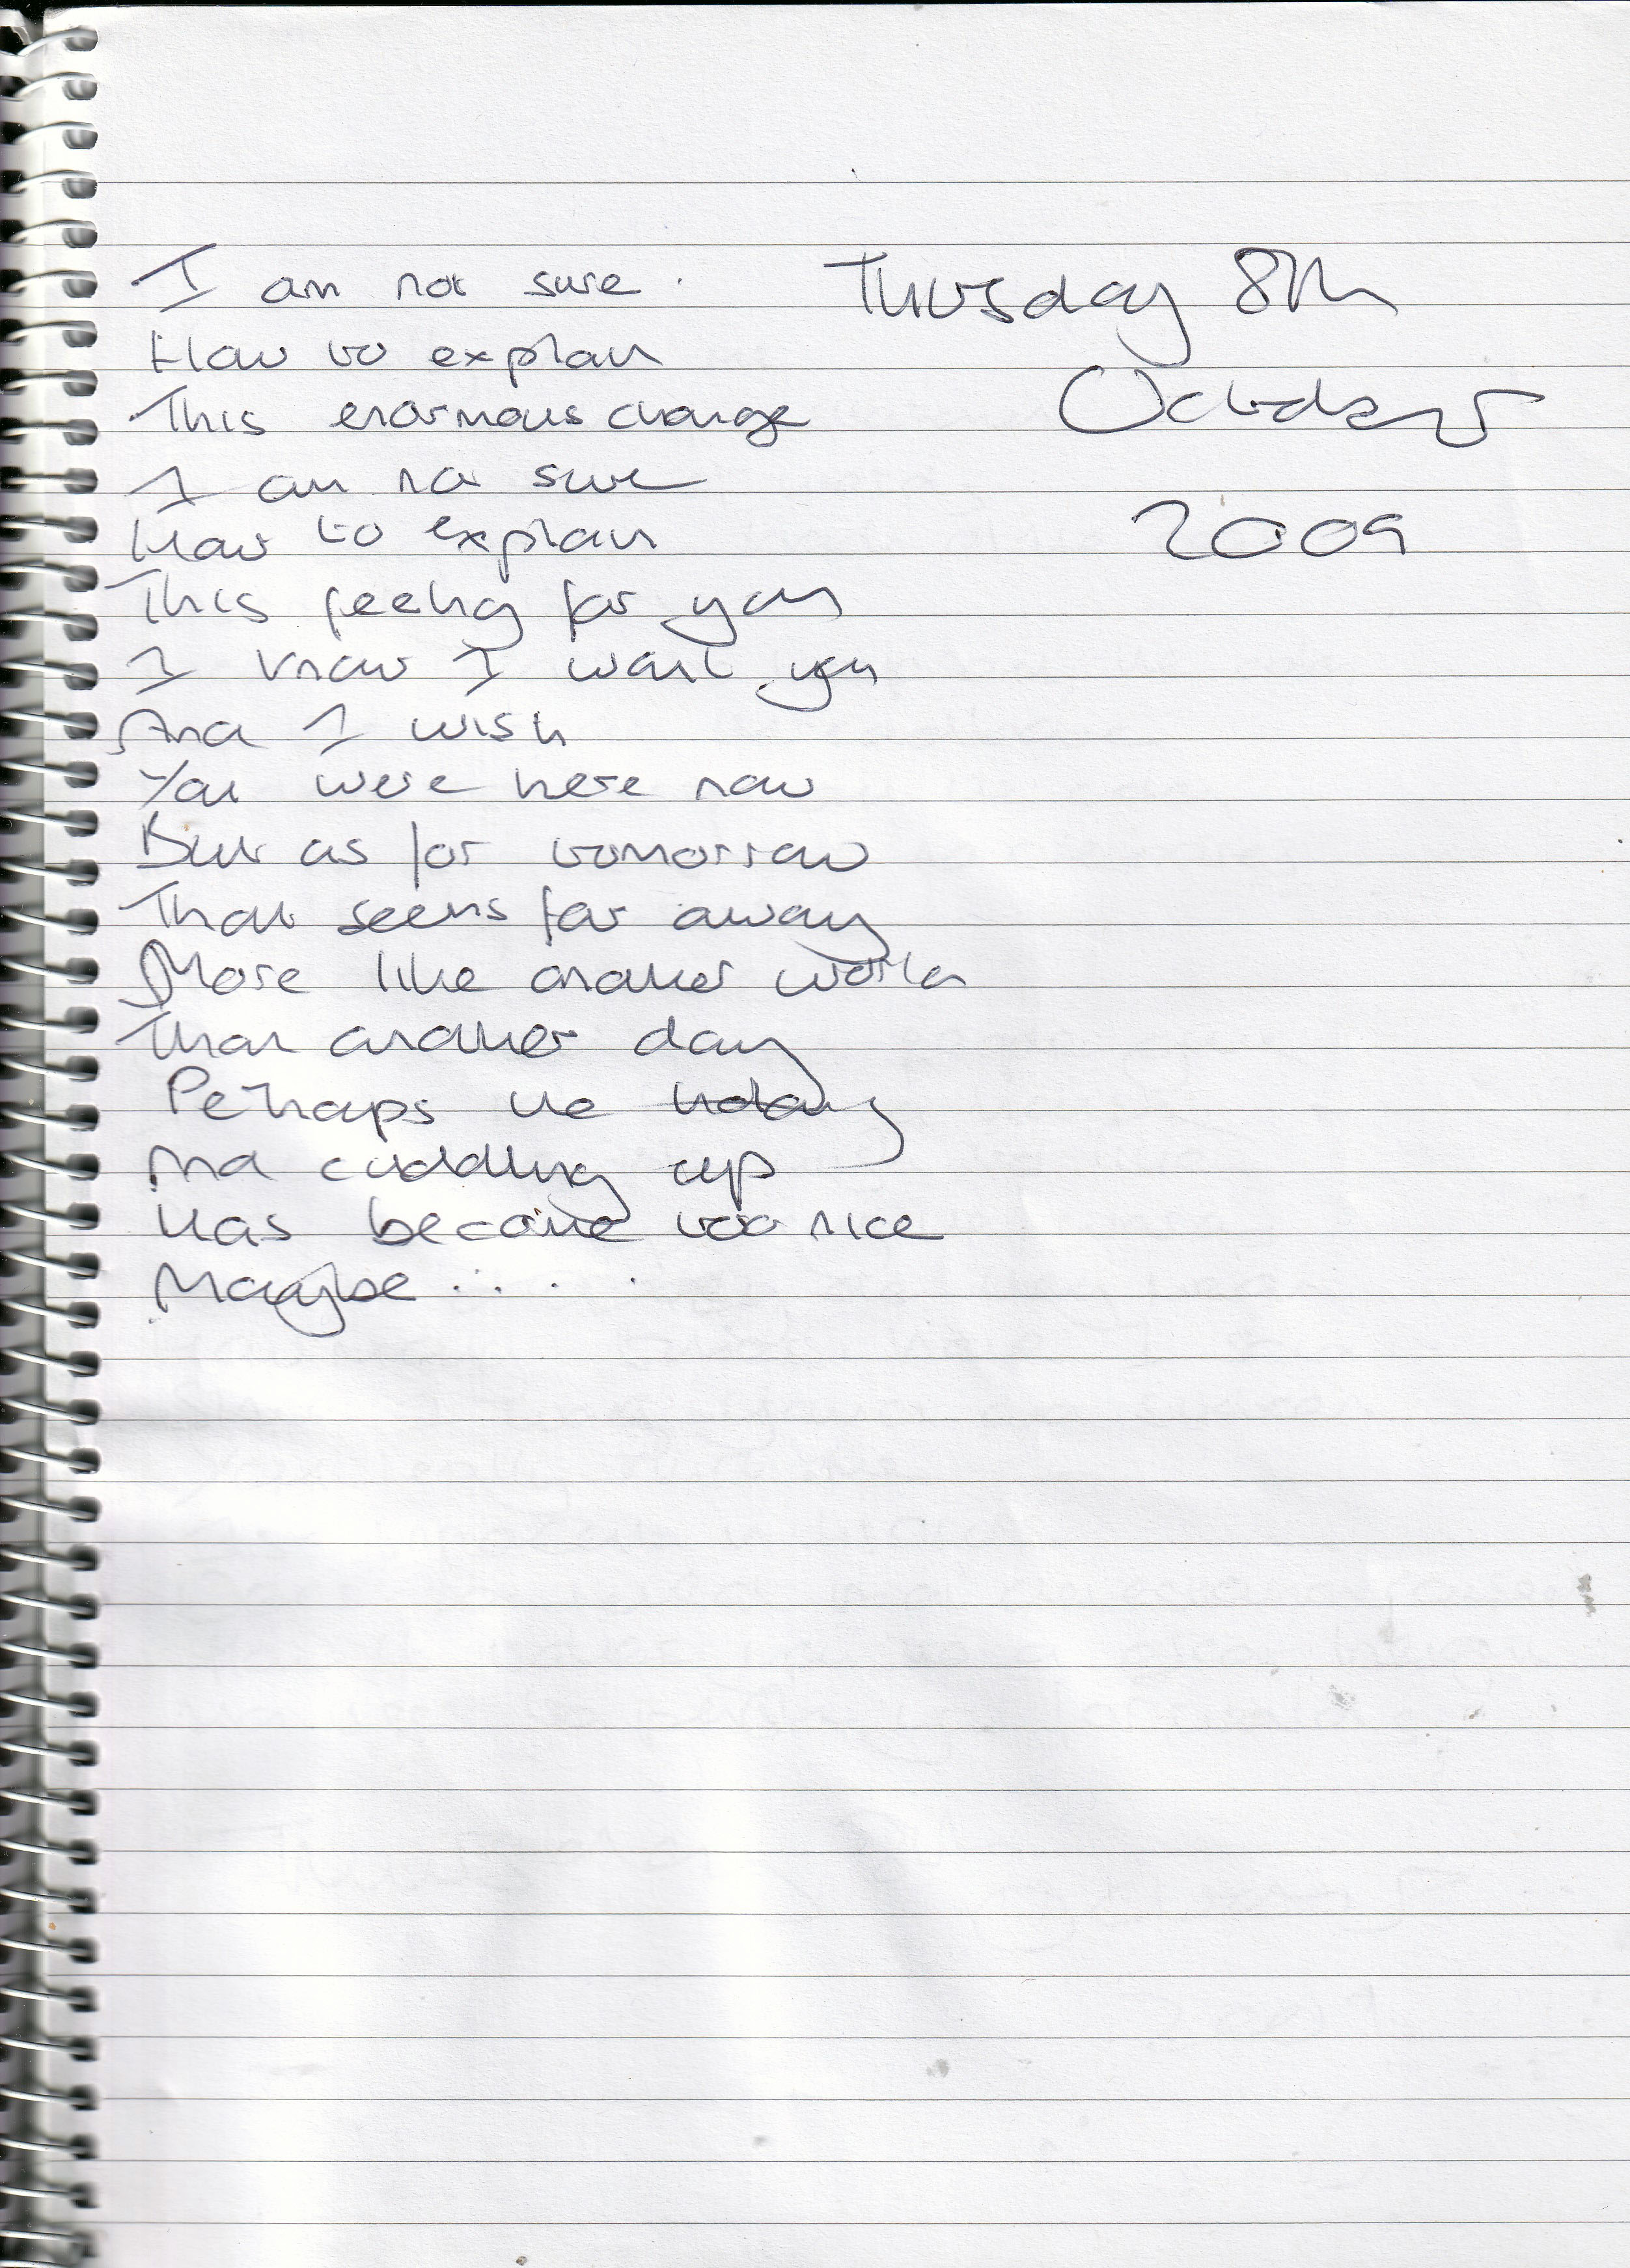 I am not sure.
Thursday 8th
How to explain
This enormous change
October
I am not sure
How to explain
2009
This feeling for you
I know I want you
And I wish
You were here now
But as for tomorrow
That seems far away
More like another world
Than another day
Perhaps the holding
And cuddling up
Has become too nice
Maybe.....